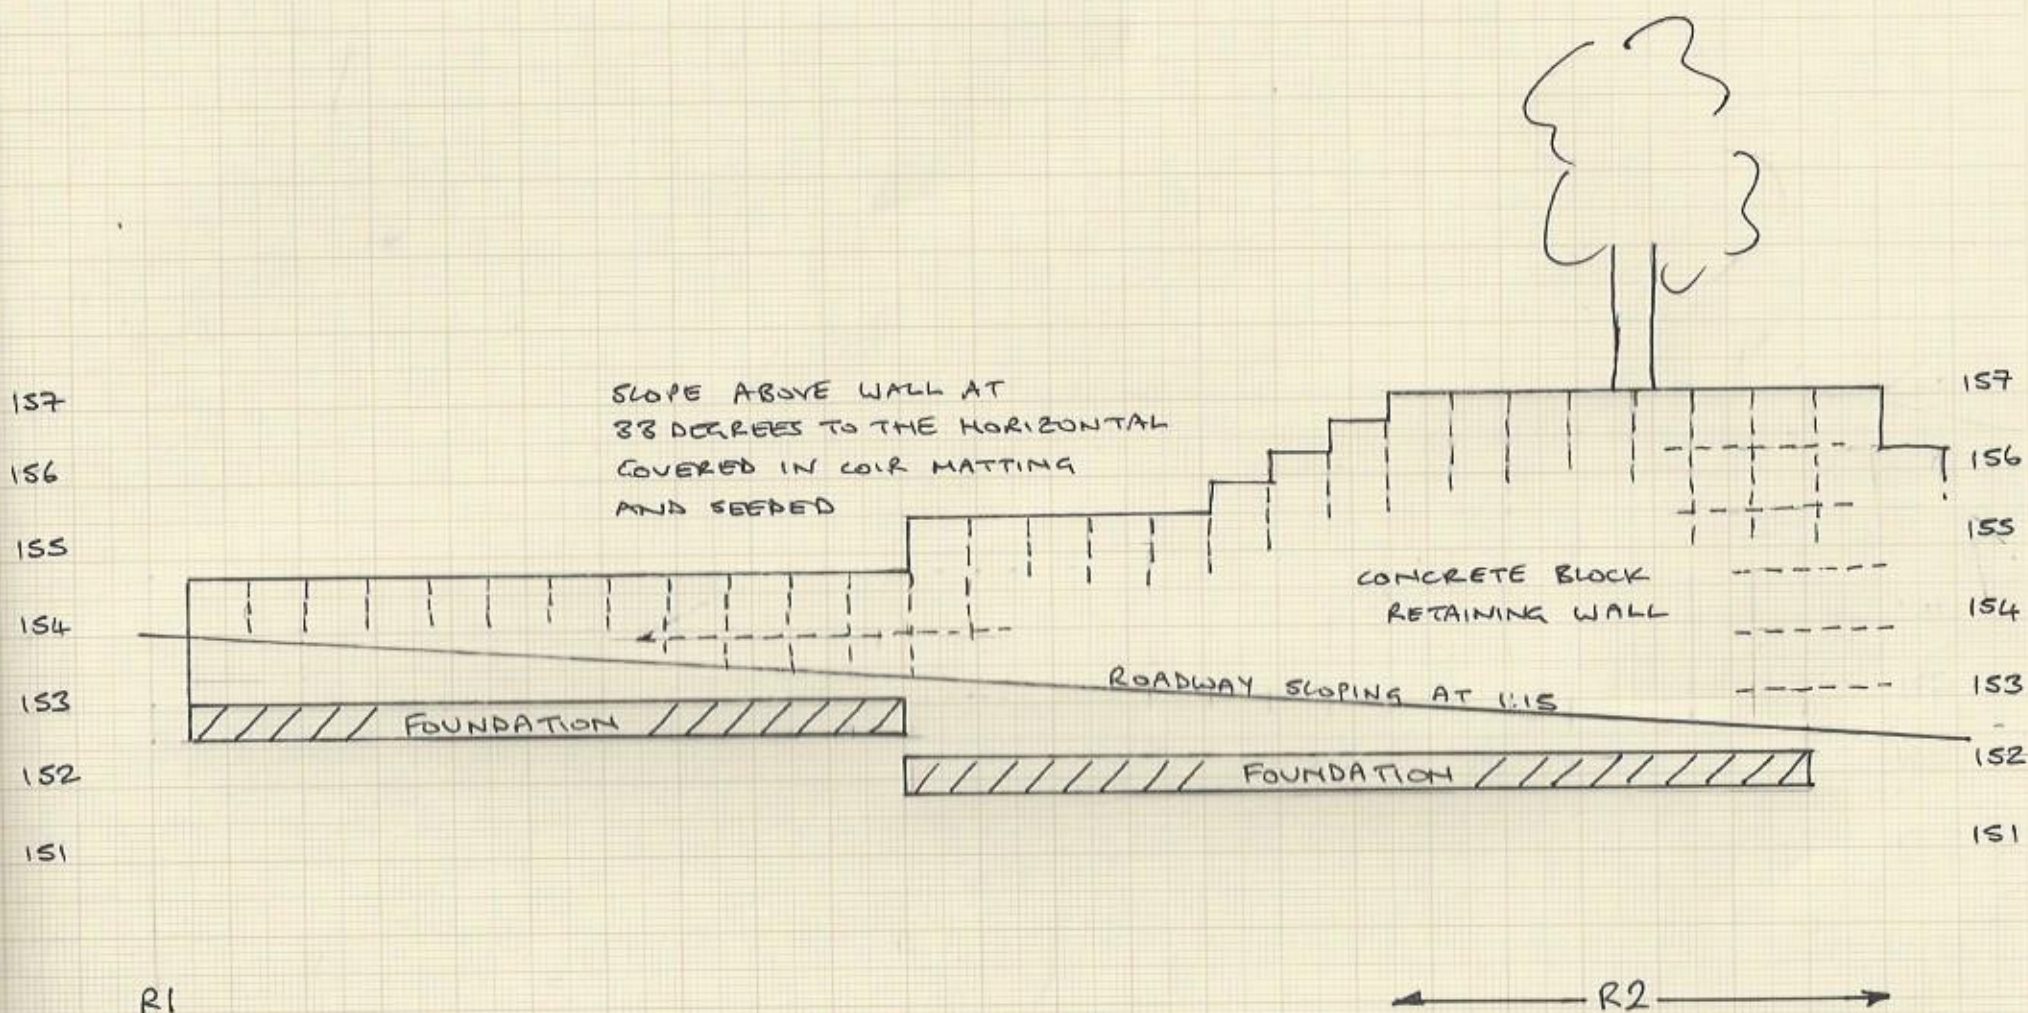 157
156
155
154
153
152
151
SLOPE ABOVE WALL AT
33 DEGREES TO THE HORIZONTAL
COVERED IN COIR MATTING
AND SEEDED
CONCRETE BLOCK
RETAINING WALL
ROADWAY SLOPING AT 1:15
FOUNDATION
FOUNDATION
157
156
155
154
153
152
151
R1
R2